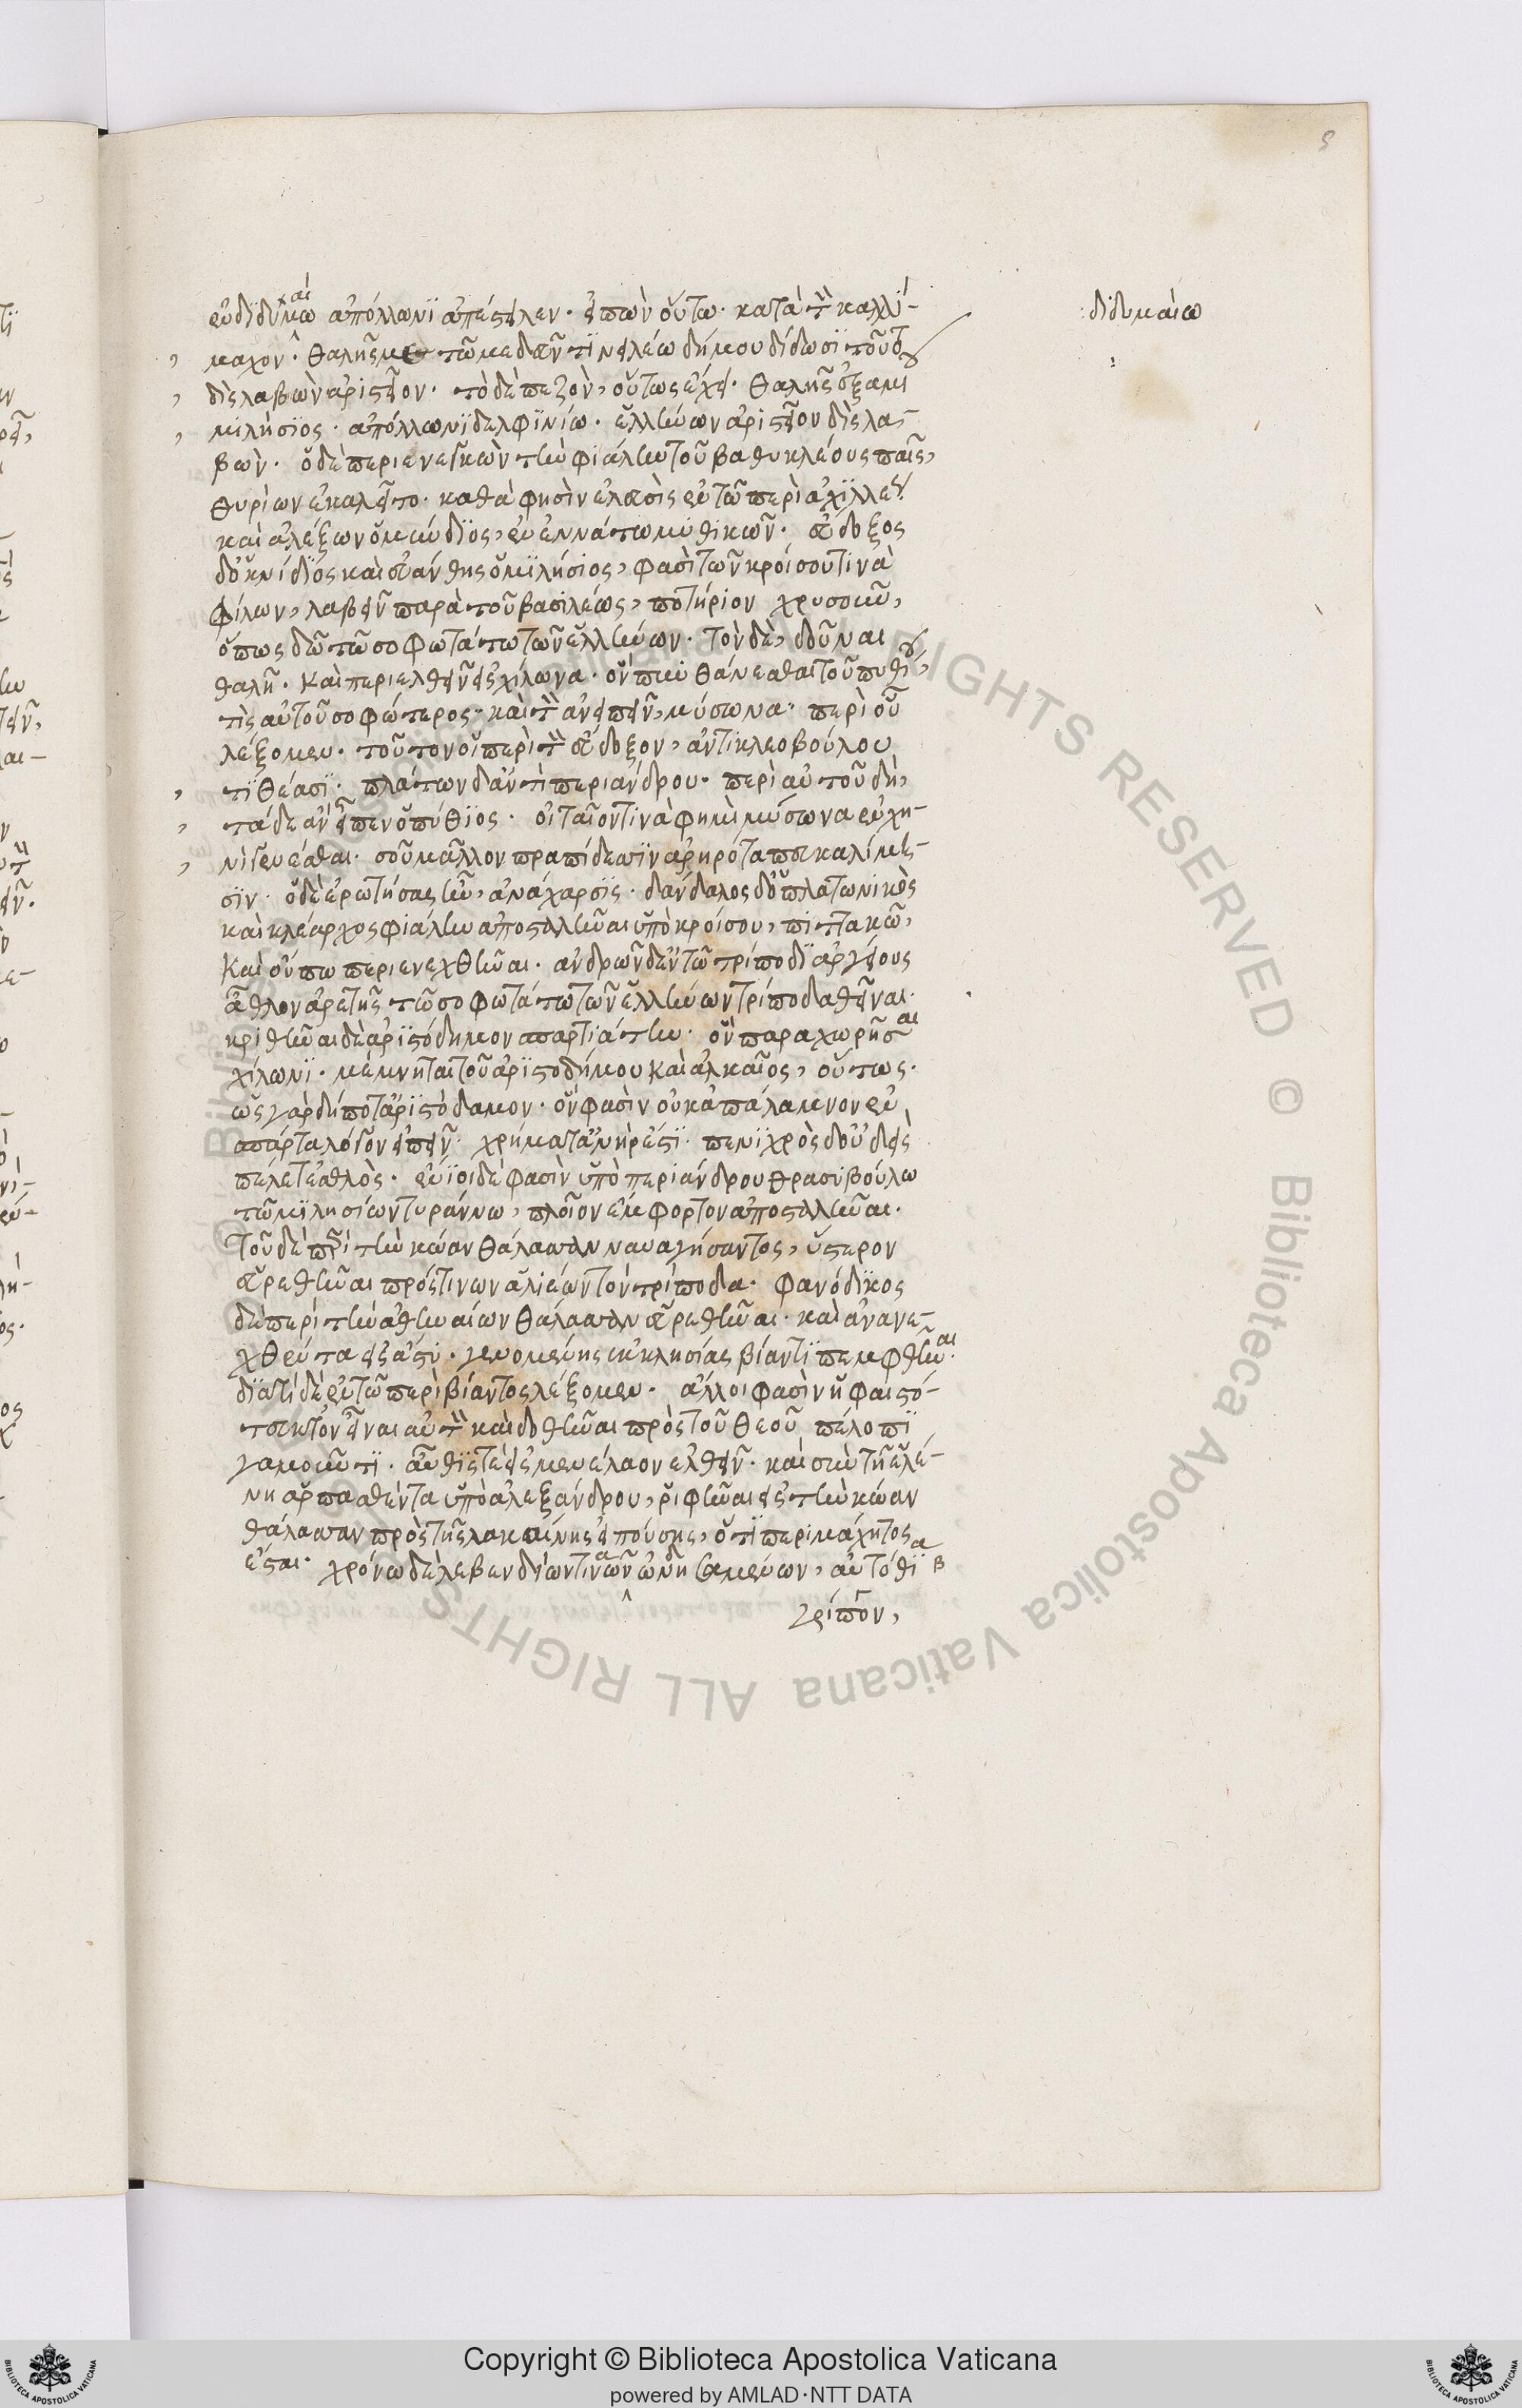 διδυμαίω
ἐνδιδυμαίω ἀπόλλωνι ἀπέστειλεν. εἰπὼν οὕτω. κατὰ τὸν καλλί-
μαχον. θαλῆς με τῶ μεδεῦντι νειλέω δήμου δίδωσι τοῦτο
δὶς λαβὼν ἀριστεῖον. τὸ δὲ πεζὸν, οὕτως ἔχει. θαλῆς ἐξαμι
μιλήσιος. ἀπόλλωνι δελφινίω. ἑλλήνων ἀριστεῖον δὶς λα-
βών. ὁ δὲ περιενεγκὼν τὴν φιάλην τοῦ βαθυκλέους παῖς,
θυρίων ἐκαλεῖτο. καθά φησιν ἔλευσις ἐν τῶ περὶ ἀχιλλέως.
καὶ ἀλέξων ὁ μύνδιος, ἐν ἐννάτω μυθικῶν. εὔδοξος
δ' ὁ κνίδιος καὶ εὐάνθης ὁ μιλήσιος, φασὶ τῶν κροίσου τινὰ
φίλων, λαβεῖν παρὰ τοῦ βασιλέως, ποτήριον χρυσοῦν,
ὅπως δῶ τῶ σοφωτάτω τῶν ἑλλήνων. τὸν δὲ, δοῦναι
θαλῆ. καὶ περιελθεῖν εἰς χίλωνα. ὃν πυνθάνεσθαι τοῦ πυθίου,
τίς αὐτοῦ σοφώτερος. καὶ τὸν ἀνειπεῖν, μύσωνα. περὶ οὗ
λέξομεν. τοῦτον οἱ περὶ τὸν εὔδοξον, ἀντὶ κλεοβούλου
τιθέασι. πλάτων δ' ἀντὶ περιάνδρου. περὶ αὐτοῦ δὴ,
τάδε ἀνεῖπεν ὁ πύθιος. οἰταῖον τινά φημι μύσωνα ἐν χη-
νὶ γενέσθαι. σοῦ μᾶλλον πραπίδεσσιν ἀρηρότα πευκαλίμῃ-
σιν. ὁ δὲ ἐρωτήσας ἦν, ἀνάχαρσις. δαίδαλος δ' ὁ πλατωνικὸς
καὶ κλέαρχος φιάλην ἀποσταλῆναι ὑπὸ κροίσου, πιττακῶ,
καὶ οὕτω περιενεχθῆναι. ἄνδρων δ' ἐν τῶ τρίποδι ἀργείους
ἆθλον ἀρετῆς τῶ σοφωτάτω τῶν ἑλλήνων τρίποδα θεῖναι.
κριθῆναι δὲ ἀριστόδημον σπαρτιάτην. ὃν παραχωρῆσαι
χίλωνι. μέμνηται τοῦ ἀριστοδήμου καὶ ἀλκαῖος, οὕτως.
ὣς γὰρ δήποτ' ἀριστόδαμον. ὃν φασὶν οὐκ ἀπάλαμνον ἐν
σπάρτα λόγον εἰπεῖν. χρήματ' ἀνήρ ἐστι. πενιχρὸς δ' οὐδεὶς
πέλετ' ἐσθλὸς. ἔνιοι δέ φασὶν ὑπὸ περιάνδρου θρασυβούλω
τῶ μιλησίων τυράννω, πλοῖον ἔμφορτον ἀποσταλῆναι.
τοῦ δὲ περὶ τὴν κώαν θάλασσαν ναυαγήσαντος, ὕστερον
εὑρεθῆναι πρός τινων ἁλιέων τὸν τρίποδα. φανόδικος
δὲ περὶ τὴν ἀθηναίων θάλασσαν εὑρεθῆναι. καὶ ἀνενε-
χθέντα εἰς ἄστυ. γενομένης ἐκκλησίας βίαντι πεμφθῆναι.
διατί δὲ ἐν τῶ περὶ βίαντος λέξομεν. ἄλλοι φασὶν ἡφαιστό-
τευκτον εἶναι αὐτὸν καὶ δοθῆναι πρὸς τοῦ θεοῦ πέλοπι
γαμοῦντι. αὖθίς τε εἰς μενέλαον ἐλθεῖν. καὶ σὺν τῆ ἑλέ-
νη ἁρπασθέντα ὑπὸ ἀλεξάνδρου, ῥιφῆναι εἰς τὴν κώαν
θάλασσαν πρὸς τῆς λακαίνης εἰπούσης, ὅτι περιμάχητος
ἔσται. χρόνω δὲ λεβεδίων τινῶν ὠνησαμένων, αὐτόθι
γρίπον,